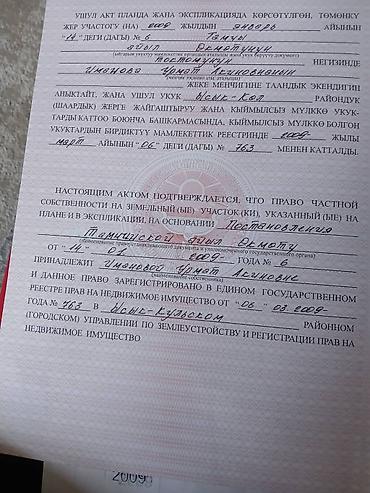 УШУЛ АКТ ПЛАНДА ЖАНА ЭКСПЛИКАЦИЯДА КӨРСӨТҮЛГӨН, ТӨМӨНКҮ
ЖЕР УЧАСТОГУ (НА) 2009 ЖЫЛДЫН январь АЙЫНЫН
"14" ДЕГИ (ДАГЫ) № 6 Тамчы
айыл Окмотунун
токтомунун НЕГИЗИНДЕ
Иманова Урмат Акиновнанын
ЖЕКЕ МЕНЧИГИНЕ ТААНДЫК ЭКЕНДИГИН
АНЫКТАЙТ. ЖАНА УШУЛ УКУК Ысык-Кол РАЙОНДУК
(ШААРДЫК) ЖЕРГЕ ЖАЙГАШТЫРУУ ЖАНА КЫЙМЫЛСЫЗ МҮЛККӨ УКУК-
ТАРДЫ КАТТОО БОЮНЧА БАШКАРМАСЫНДА, КЫЙМЫЛСЫЗ МҮЛККӨ БОЛГОН
УКУКТАРДЫН БИРДИКТҮҮ МАМЛЕКЕТТИК РЕЕСТРИНДЕ 2009- ЖЫЛЫ
март АЙЫНЫН "06" ДЕГИ (ДАГЫ) № 763 МЕНЕН КАТТАЛДЫ.
НАСТОЯЩИМ АКТОМ ПОДТВЕРЖДАЕТСЯ, ЧТО ПРАВО ЧАСТНОЙ
СОБСТВЕННОСТИ НА ЗЕМЕЛЬНЫЙ (ЫЕ) УЧАСТОК (КИ), УКАЗАННЫЙ (ЫЕ) НА
ПЛАНЕ И В ЭКСПЛИКАЦИИ, НА ОСНОВАНИИ Постановления
Тамчийской айыл Окмоту
ОТ "14" 01 2009- ГОДА № 6
ПРИНАДЛЕЖИТ Имановой Урмат Акиновне
И ДАННОЕ ПРАВО ЗАРЕГИСТРИРОВАНО В ЕДИНОМ ГОСУДАРСТВЕННОМ
РЕЕСТРЕ ПРАВ НА НЕДВИЖИМОЕ ИМУЩЕСТВО ОТ "06" 03. 2009-
ГОДА № 763 В Ысык-Кульском РАЙОННОМ
(ГОРОДСКОМ) УПРАВЛЕНИИ ПО ЗЕМЛЕУСТРОЙСТВУ И РЕГИСТРАЦИИ ПРАВ НА
НЕДВИЖИМОЕ ИМУЩЕСТВО
2009